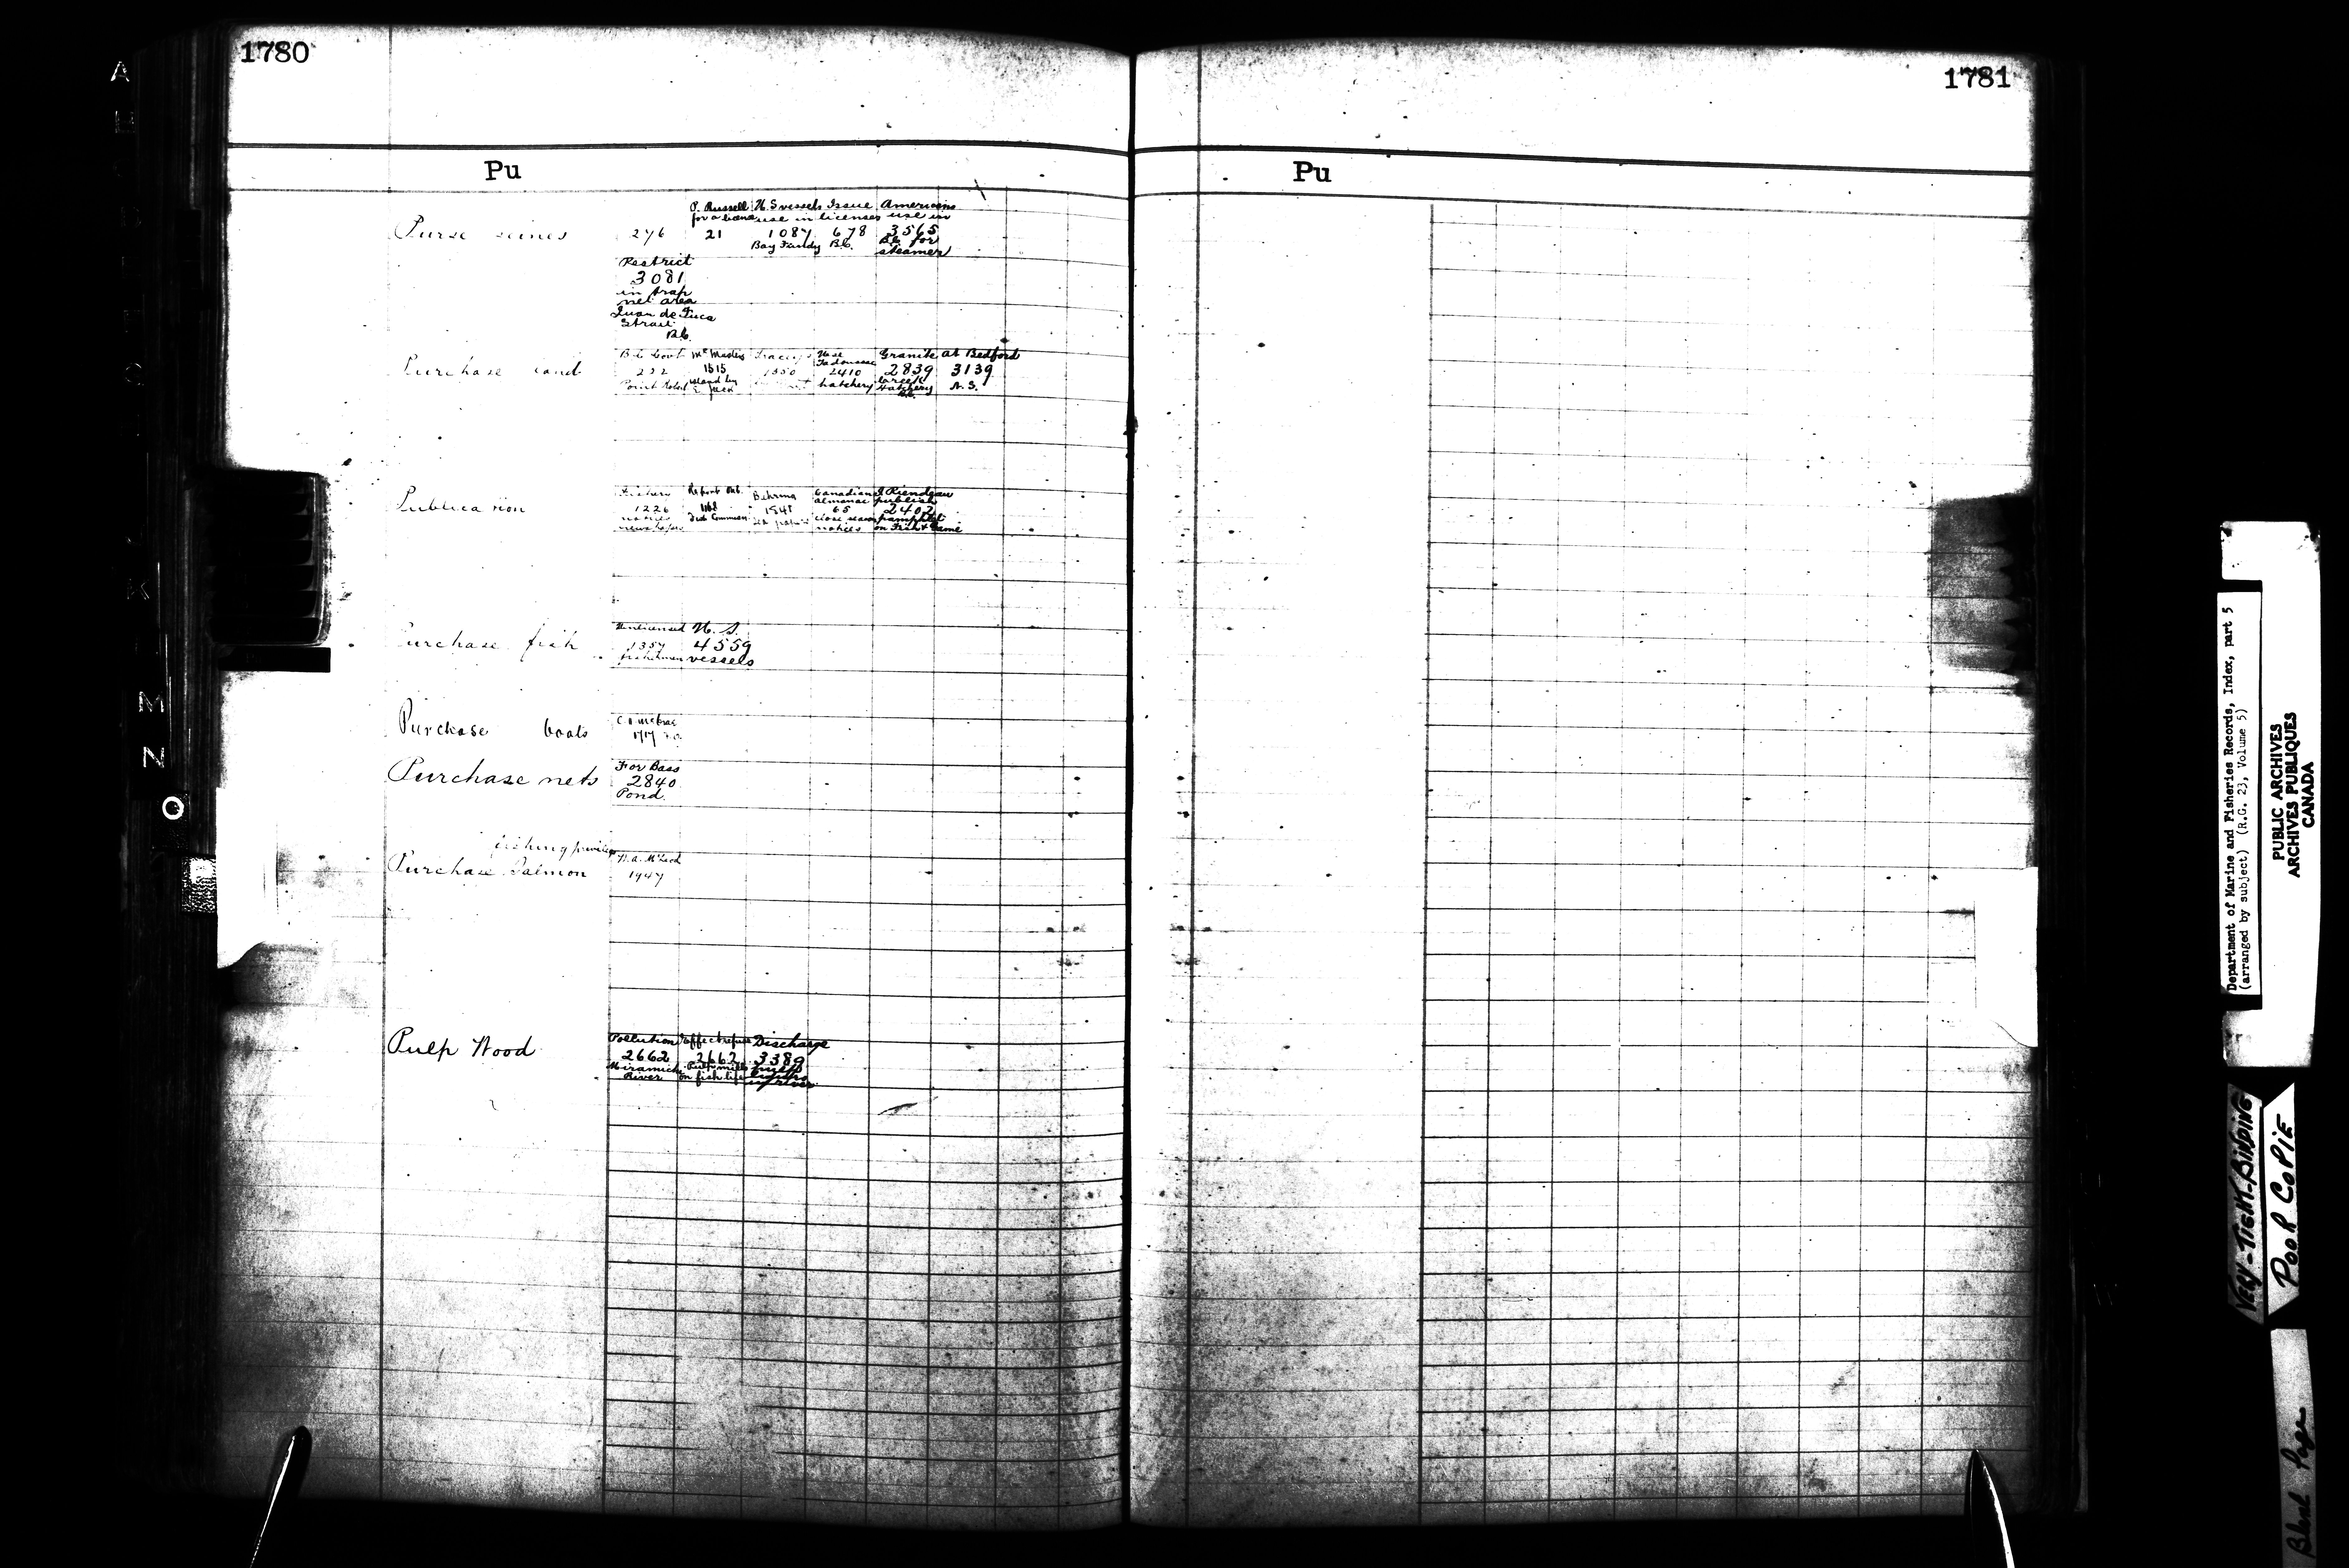 1780
Pu
Purse seines
276
P. Russell
for a license
21
U.S vessels
use in
1087
Bay Fundy
Issue
licenses
678
B.C.
Americans
use in
3565
B.C. for
steamer
Restrict
3081
in trap
net area
Juan de Fuca
Strait
B.C.
Purchase land
B.C. Govt
232
McMasters
1515
Island
1350
Tadoussac
2410
hatchery
Granite
2839
Creek
Hatchery
B.C.
at Bedford
3139
N.S.
Publication
Fishery
1226
notices
newspapers
Report
Commission
Behring
1548
Canadian
almanac
65
close season
notices
J Riendeau
publish
2402
pamphlet
on Fish & Game
Purchase fish
Unlicensed
1357
fishermen
U.S.
4559
vessels
Purchase boats
1717
Purchase nets
For Bass
2840
Pond.
fishing privileges
Purchase Salmon
McLeod
1947
Pulp Wood
Pollution
2662
Miramichi
River
Effect refuse
2662
Pulp mills
on fish life
Discharge
3389
pulp
1781
Pu
A
M
N
O
Department of Marine and Fisheries Records, Index, part 5
(arranged by subject) (R.G. 23, Volume 5)
PUBLIC ARCHIVES
ARCHIVES PUBLIQUES
CANADA
VERY-TIGHT-BINDING
POOR COPIE
Blank Page